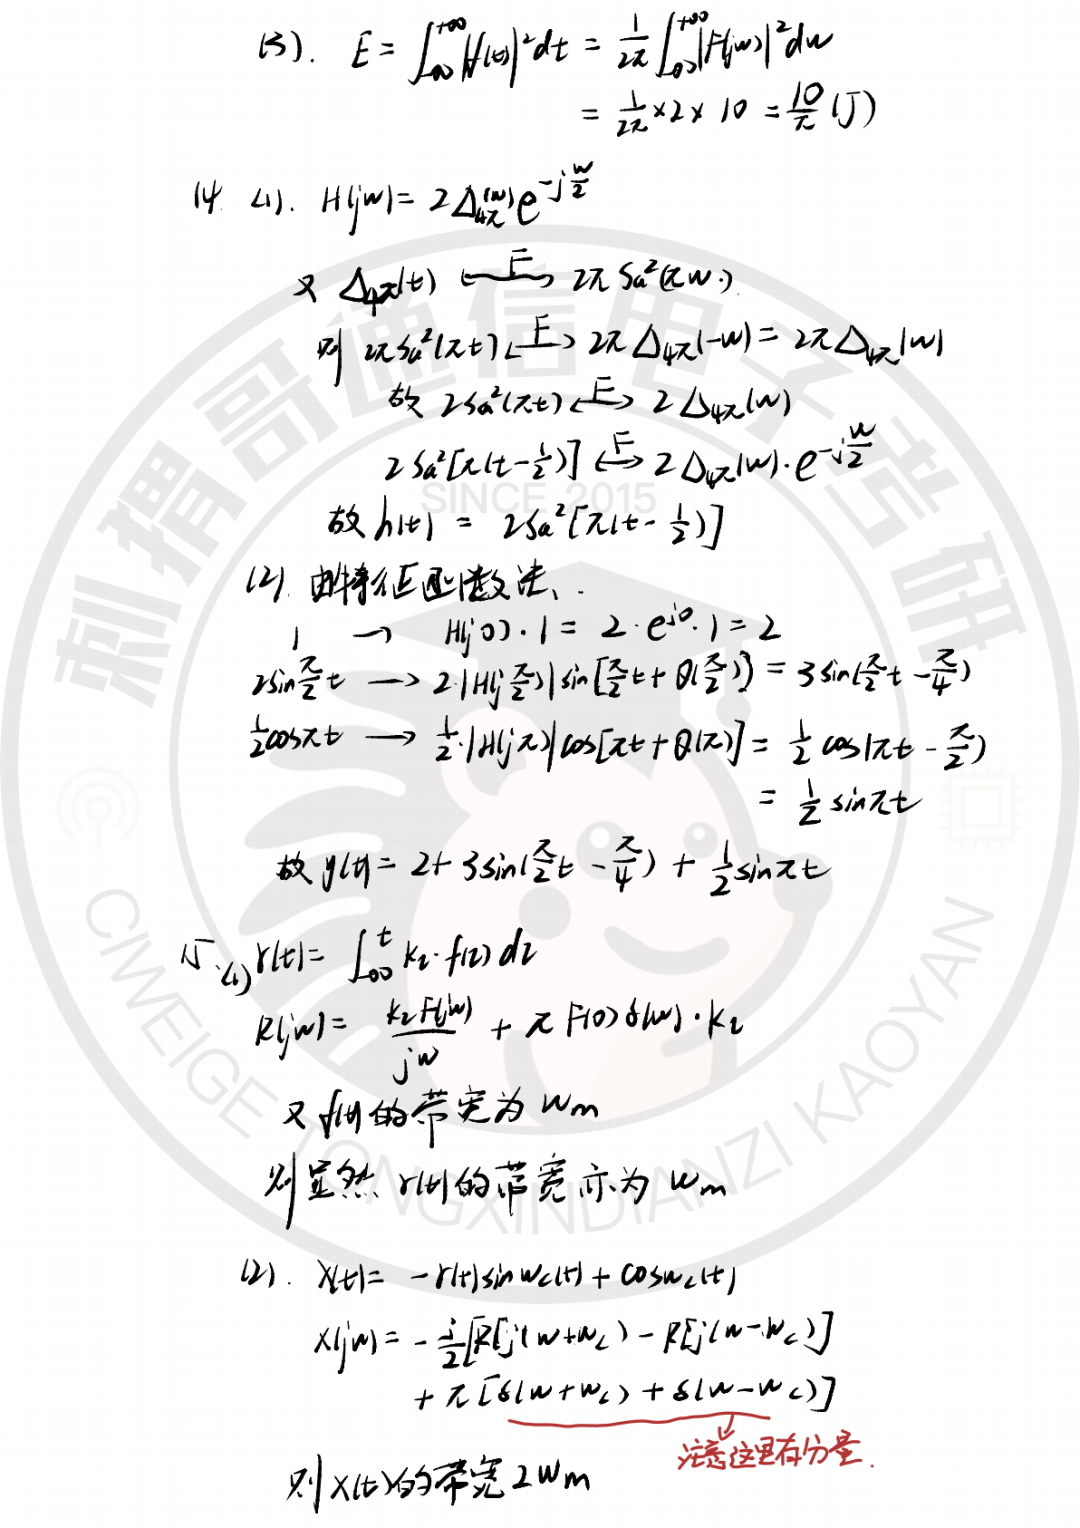 (3). E = ∫_{-∞}^{+∞} |f(t)|² dt = \frac{1}{2π} ∫_{-∞}^{+∞} |F(jw)|² dw
= \frac{1}{2π} × 2 × 10 = \frac{10}{π} (J)
14. (1). H(jw) = 2Δ_{4π}(w) e^{-j\frac{w}{2}}
又 Δ_{4π}(t) ⟷^{F} 2π Sa²(πw).
则 2πSa²(πt) ⟷^{F} 2πΔ_{4π}(-w) = 2πΔ_{4π}(w)
故 2Sa²(πt) ⟷^{F} 2Δ_{4π}(w)
2Sa²[π(t-\frac{1}{2})] ⟷^{F} 2Δ_{4π}(w)·e^{-j\frac{w}{2}}
故 h(t) = 2Sa²[π(t-\frac{1}{2})]
(2). 由特征函数法、.
1 → H(j0)·1 = 2·e^{j0}·1 = 2
2sin\frac{π}{2}t → 2·|H(j\frac{π}{2})| sin[\frac{π}{2}t + θ(\frac{π}{2})] = 3sin(\frac{π}{2}t - \frac{π}{4})
\frac{1}{2}cosπt → \frac{1}{2}·|H(jπ)| cos[πt + θ(π)] = \frac{1}{2}cos(πt - \frac{π}{2})
= \frac{1}{2}sinπt
故 y(t) = 2 + 3sin(\frac{π}{2}t - \frac{π}{4}) + \frac{1}{2}sinπt
15. (1) r(t) = ∫_{-∞}^{t} k₂·f(τ) dτ
R(jw) = \frac{k₂F(jw)}{jw} + πF(0)δ(w)·k₂
又 f(t) 的带宽为 wm
则显然 r(t) 的带宽亦为 wm
(2). x(t) = -r(t)sinwc(t) + coswc(t)
X(jw) = -\frac{j}{2}[R[j(w+wc) - R[j(w-wc)]
+ π[δ(w+wc) + δ(w-wc)]
注意这里有分量.
则 x(t) 的带宽 2wm
刺猬哥通信电子考研
SINCE 2015
CIWEIGE TONGXINDIANZI KAOYAN